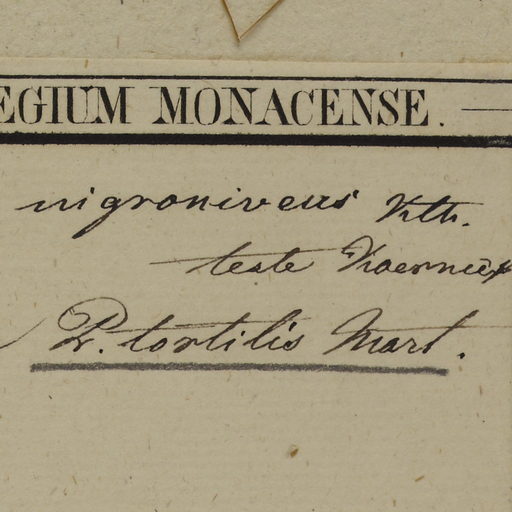 EGIUM MONACENSE.
nigroniveus Kth.
— teste Koernicke
P. tortilis Mart.